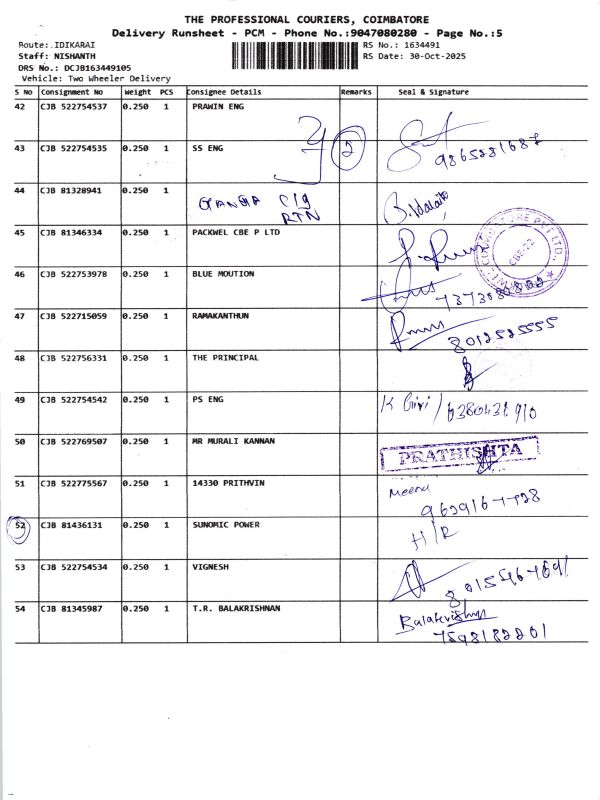 THE PROFESSIONAL COURIERS, COIMBATORE
Delivery Runsheet - PCM - Phone No.:9047080280 - Page No.:5
Route:.IDIKARAI RS No.: 1634491
Staff: NISHANTH RS Date: 30-Oct-2025
DRS No.: DCJB163449105
Vehicle: Two Wheeler Delivery
S No Consignment No Weight PCS Consignee Details Remarks Seal & Signature
42 CJB 522754537 0.250 1 PRAWIN ENG
43 CJB 522754535 0.250 1 SS ENG 2 9865281687
44 CJB 81328941 0.250 1 GANGA C/g
RTN
45 CJB 81346334 0.250 1 PACKWEL CBE P LTD CBE-22
46 CJB 522753978 0.250 1 BLUE MOUTION
47 CJB 522715059 0.250 1 RAMAKANTHUN 8012525555
48 CJB 522756331 0.250 1 THE PRINCIPAL
49 CJB 522754542 0.250 1 PS ENG K Giri/
50 CJB 522769507 0.250 1 MR MURALI KANNAN PRATHISHTA
51 CJB 522775567 0.250 1 14330 PRITHVIN Meena
52 CJB 81436131 0.250 1 SUNOMIC POWER H/R
53 CJB 522754534 0.250 1 VIGNESH
54 CJB 81345987 0.250 1 T.R. BALAKRISHNAN Balakrishnan
7598182201